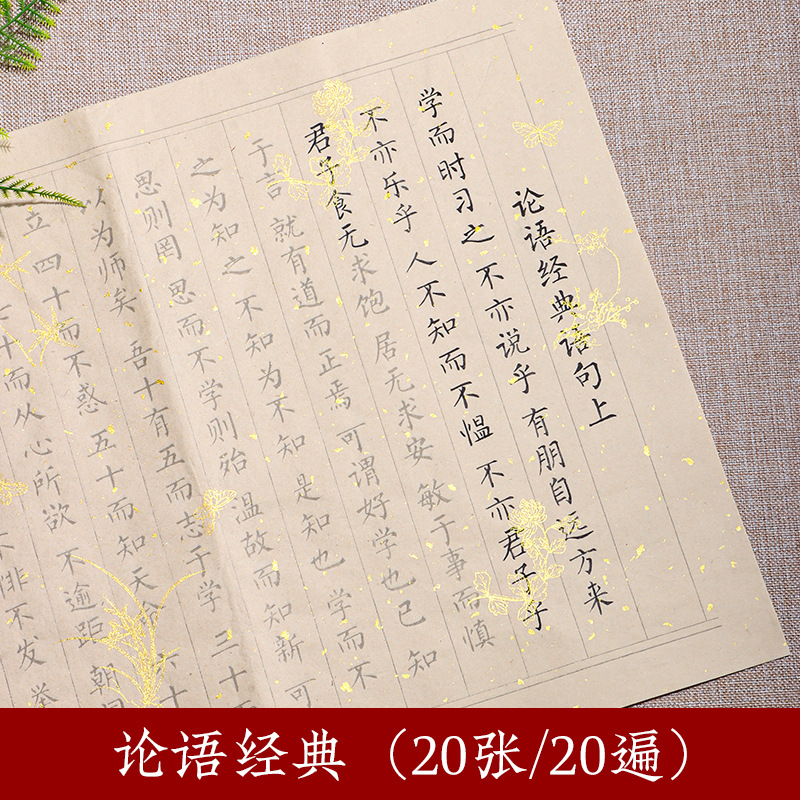 论语经典语句上
学而时习之 不亦说乎 有朋自远方来
不亦乐乎 人不知而不愠 不亦君子乎
君子食无求饱 居无求安 敏于事而慎
于言 就有道而正焉 可谓好学也已 知
之为知之 不知为不知 是知也 学而不
思则罔 思而不学则殆 温故而知新 可
以为师矣 吾十有五而志于学 三十而
立 四十而不惑 五十而知天命 六十
十而从心所欲 不逾距 朝
不悱不发 举
论语经典（20张/20遍）